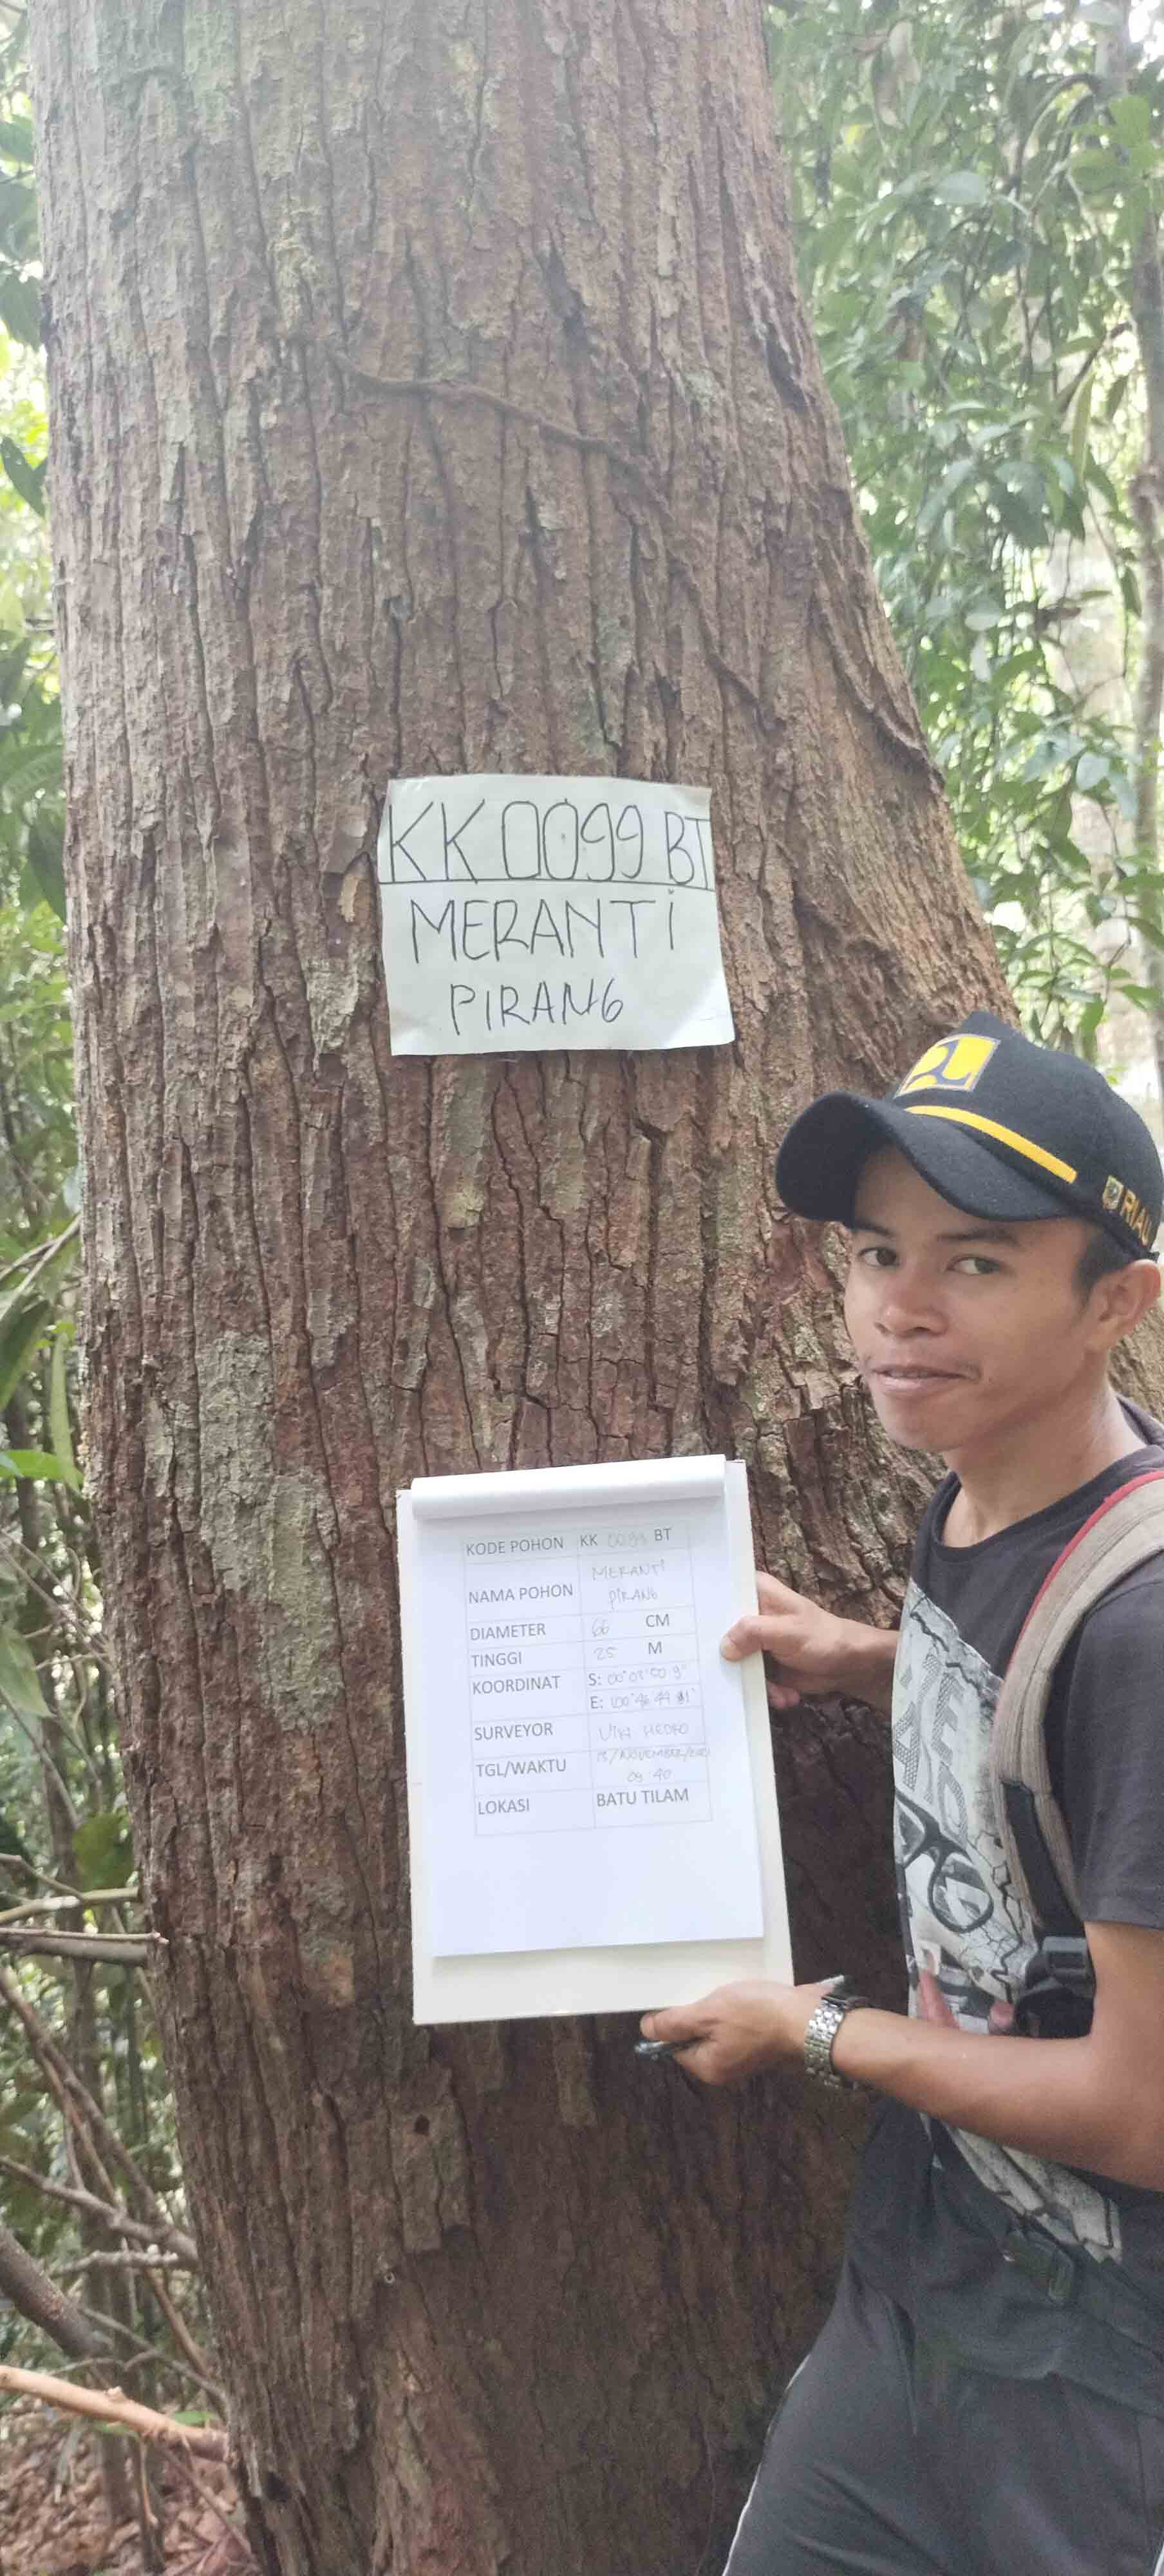 KK 0099 BT
MERANTI
PIRANG
RIAU
KODE POHON KK 0099 BT
NAMA POHON MERANTI PIRANG
DIAMETER 66 CM
TINGGI 25 M
KOORDINAT S: 00°
E: 100°46'44
SURVEYOR
TGL/WAKTU /NOVEMBER/
09 40
LOKASI BATU TILAM